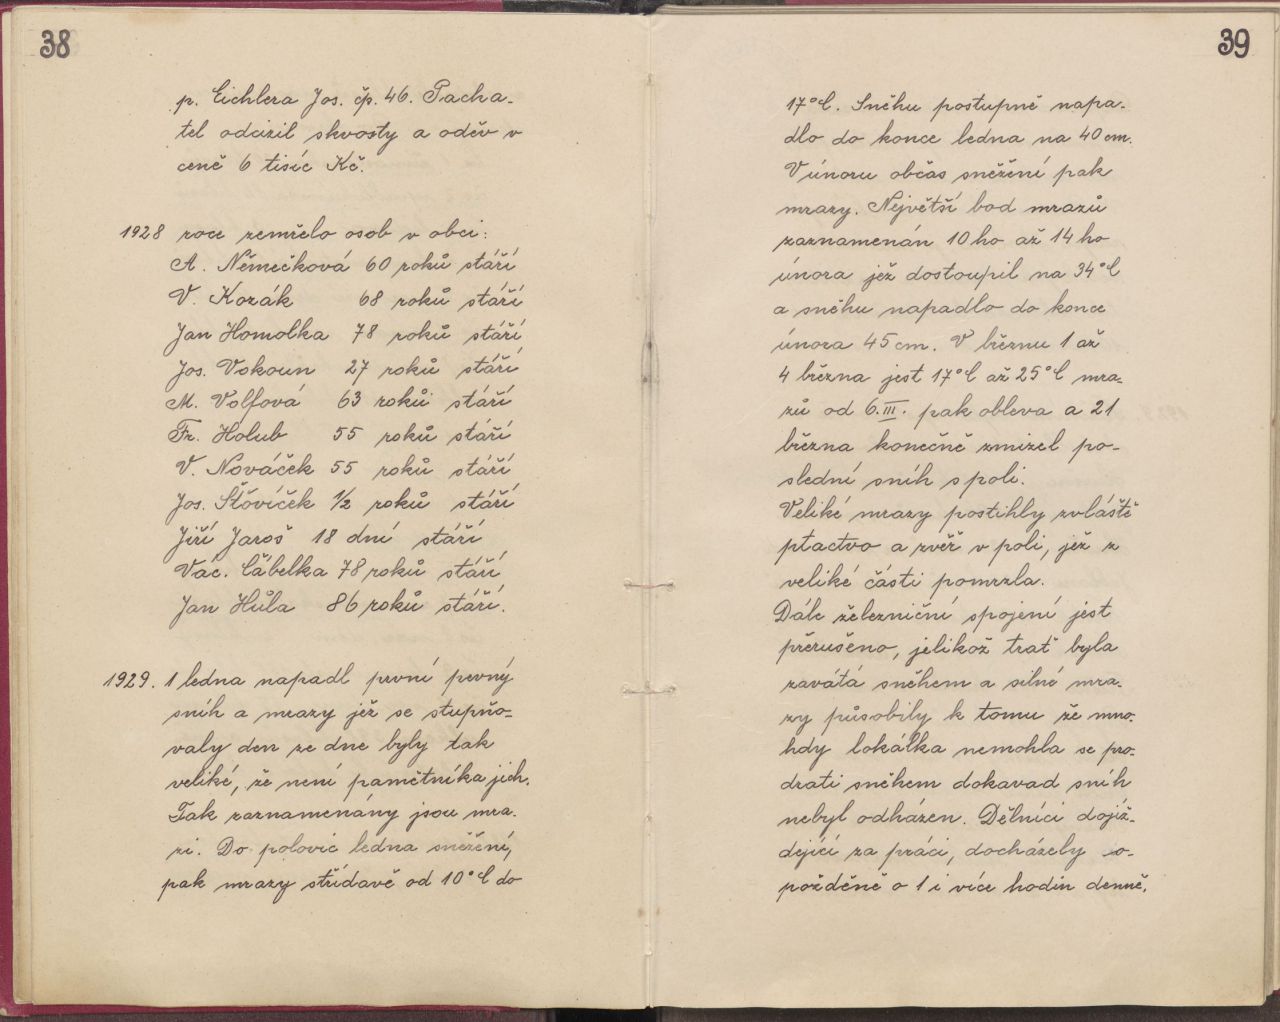 38
p. Eichlera Jos. čp. 46. Pacha-
tel odcizil skvosty a oděv v
ceně 6 tisíc Kč.
1928 roce zemřelo osob v obci:
A. Němečková 60 roků stáří
V. Kozák 68 roků stáří
Jan Homolka 78 roků stáří
Jos. Vokoun 27 roků stáří
M. Volfová 63 roků stáří
Fr. Holub 55 roků stáří
V. Nováček 55 roků stáří
Jos. Šťovíček 1/2 roků stáří
Jiří Jaroš 18 dní stáří
Vác. Čábelka 78 roků stáří
Jan Hůla 86 roků stáří.
1929. 1 ledna napadl první pevný
sníh a mrazy jež se stupňo-
valy den ze dne byly tak
veliké, že není pamětníka jich.
Tak zaznamenány jsou mra-
zi. Do polovic ledna sněžení,
pak mrazy střídavě od 10°C do
39
17°C. Sněhu postupně napa-
dlo do konce ledna na 40 cm.
V únoru občas sněžení pak
mrazy. Největší bod mrazů
zaznamenán 10 ho až 14 ho
února jež dostoupil na 34°C
a sněhu napadlo do konce
února 45 cm. V březnu 1 až
4 března jest 17°C až 25°C mra-
zů od 6. III. pak obleva a 21
března konečně zmizel po-
slední sníh s poli.
Veliké mrazy postihly zvláště
ptactvo a zvěř v poli, jež z
veliké části pomrzla.
Dále železniční spojení jest
přerušeno, jelikož trať byla
zavátá sněhem a silné mra-
zy působily k tomu že mno-
hdy lokálka nemohla se pro-
drati sněhem dokavad sníh
nebyl odházen. Dělníci dojíž-
dějící za práci, docházely o-
požděně o 1 i více hodin denně,